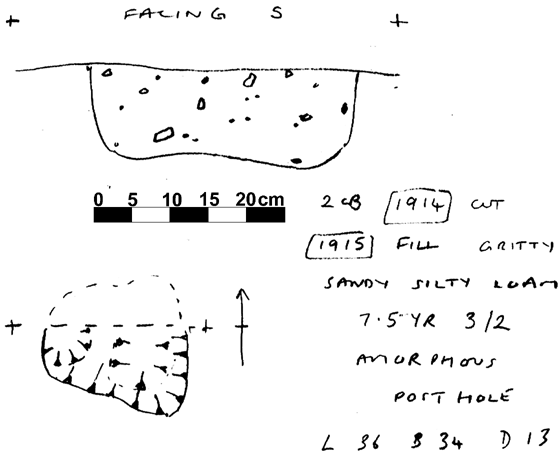 FACING S
0 5 10 15 20 cm
1914 CUT
1915 FILL GRITTY
SANDY SILTY LOAM
7.5 YR 3/2
AMORPHOUS
POST HOLE
L 36 B 34 D 13